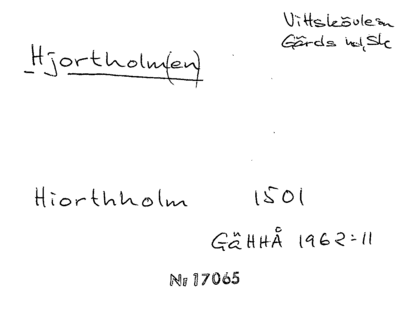 Vittskövle sn
Gärds hd, Sk
Hjortholm(en)
Hiorthholm 1501
GäHHÅ 1962:11
Nr 17065